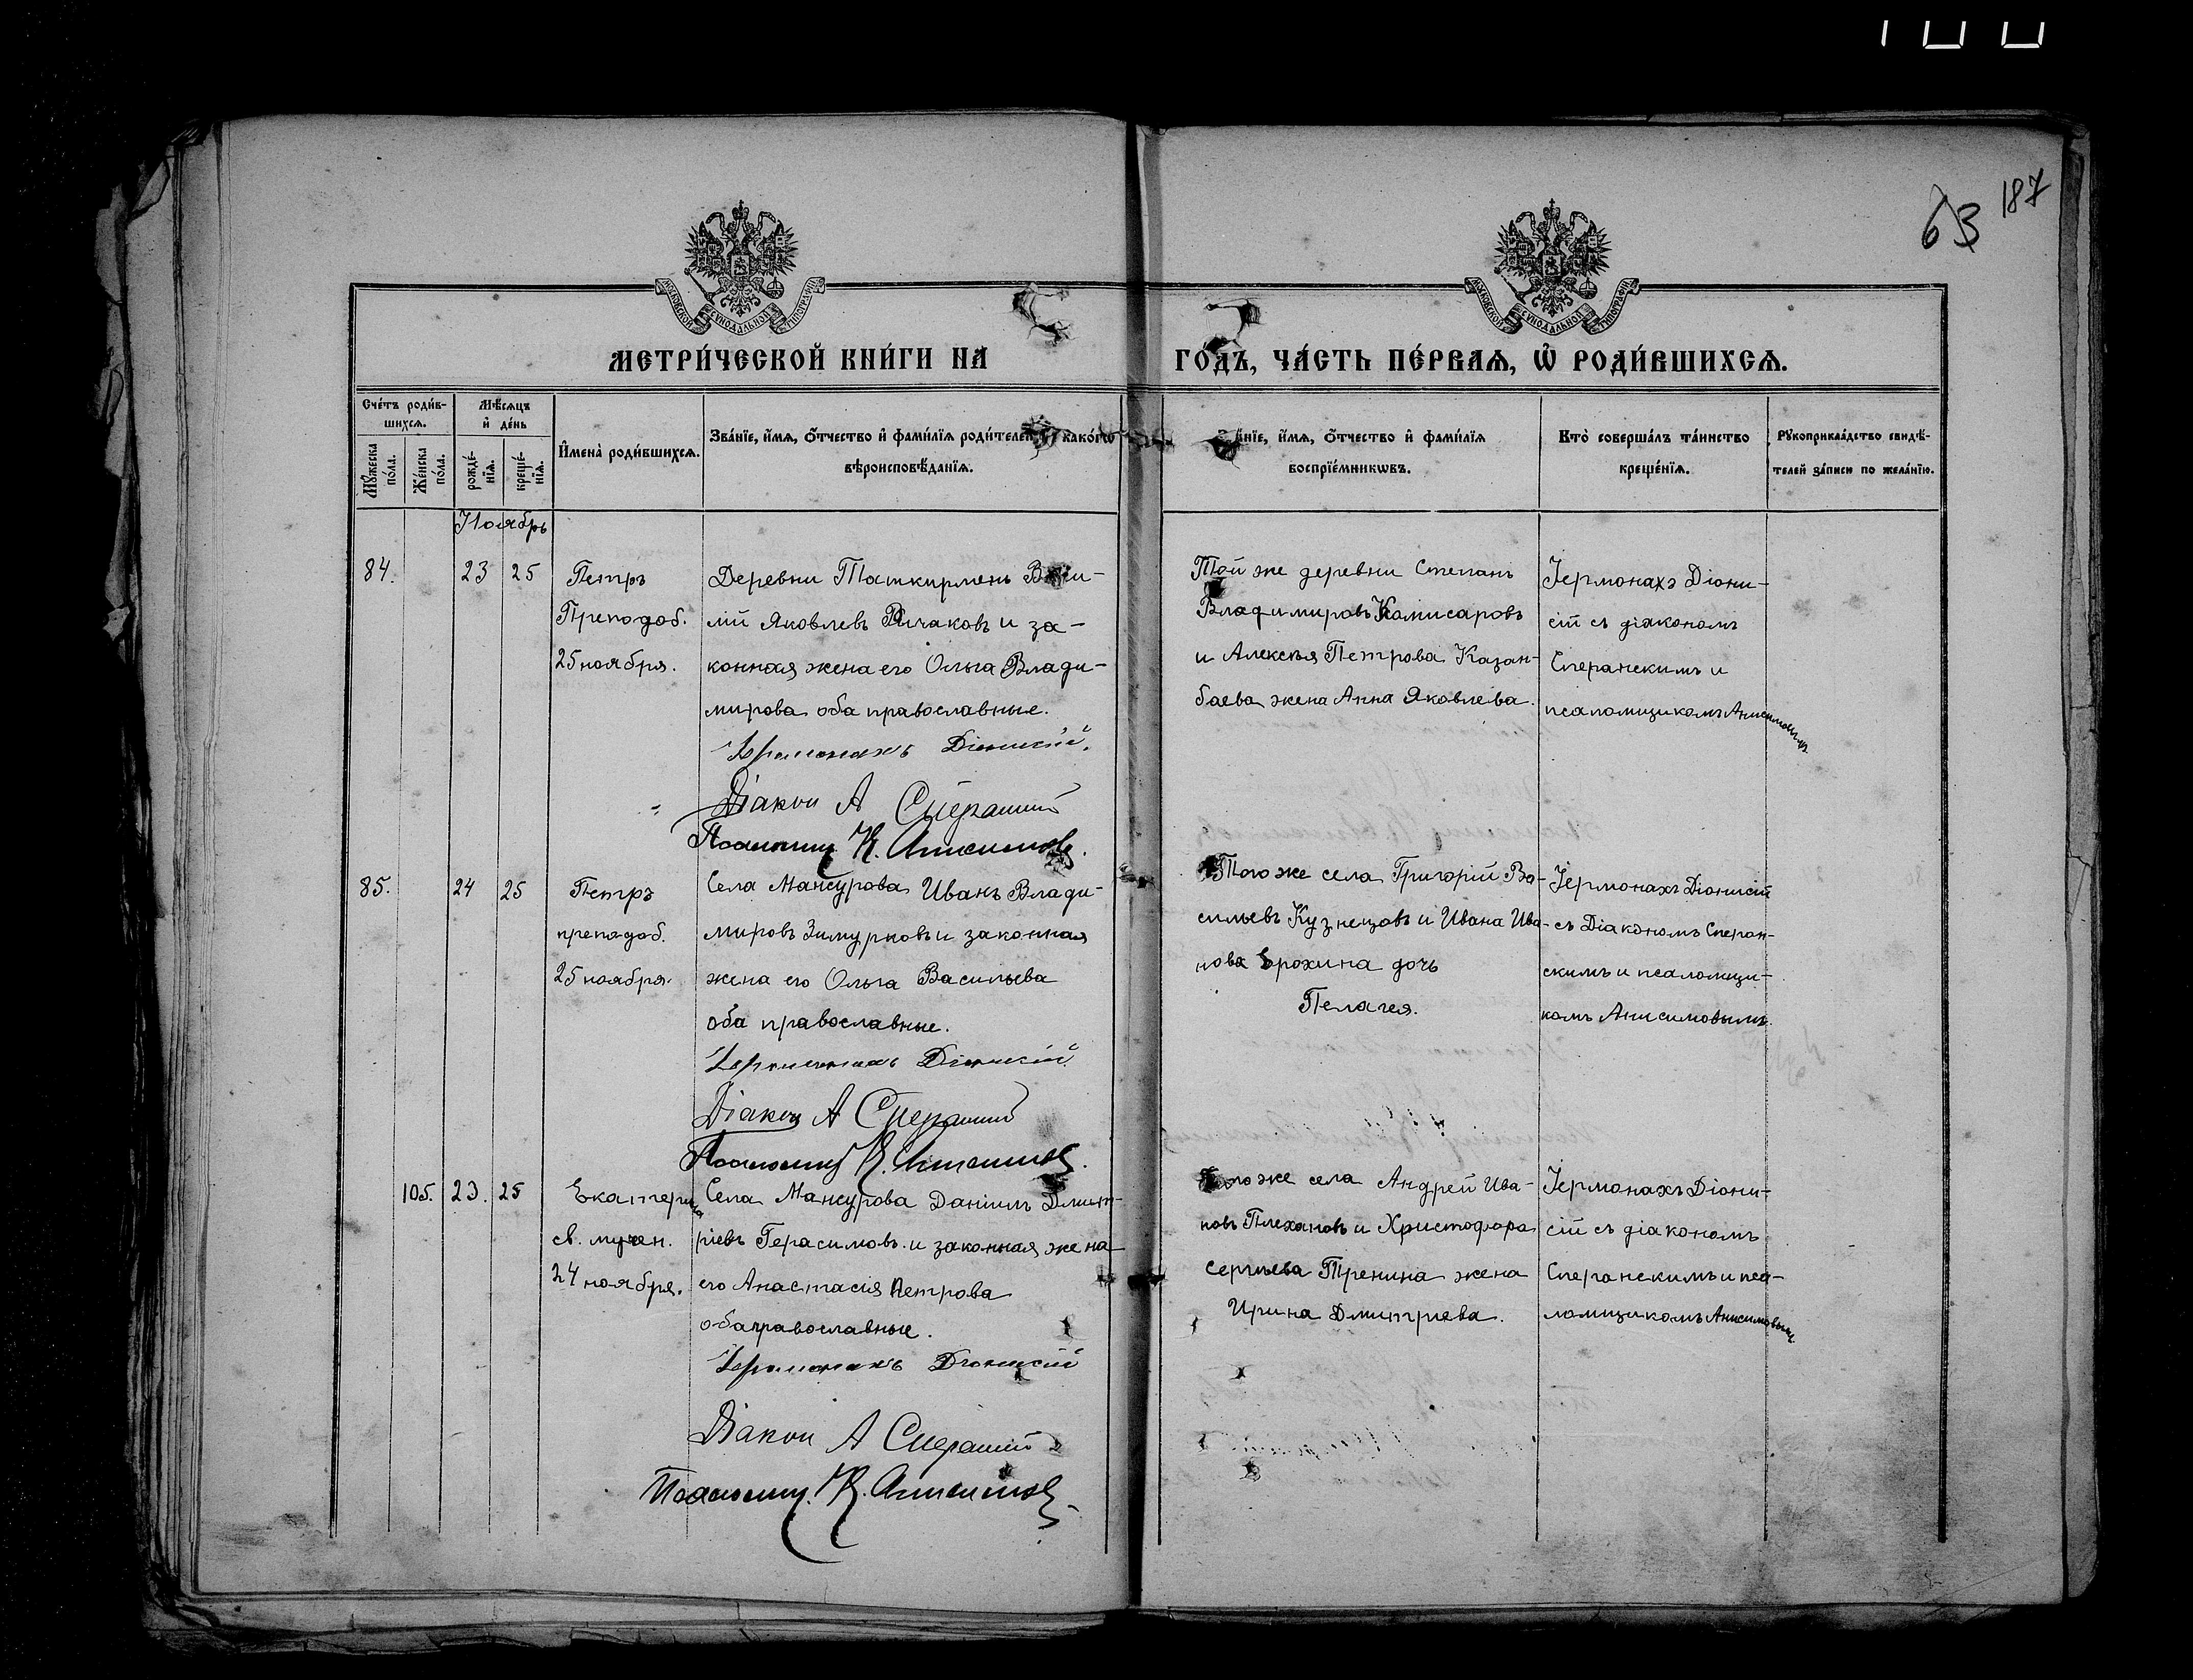 63 187
МЕТРИ́ЧЕСКОЙ КНИ́ГИ НА
ГО́ДЪ, ЧА́СТЬ ПЕ́РВАЯ, Ѡ҆ РОДИ́ВШИХСЯ.
Сче́тъ роди́в-
шихся.
Мꙋ́жеска по́ла.
Же́нска по́ла.
Мѣ́сяцъ
и҆ де́нь
рожде́-
нїя.
креще́-
нїя.
И҆мена̀ роди́вшихся.
Зва́нїе, и҆́мя, ѻ҆́тчество и҆ фами́лїя роди́телей, и҆ како́гѡ
вѣроисповѣ́данїя.
Зва́нїе, и҆́мя, ѻ҆́тчество и҆ фами́лїя
воспрїе́мникѡвъ.
Кто̀ соверша́лъ та́инство
креще́нїя.
Рꙋкоприкла́дство свидѣ́-
телей за́писи по жела́нїю.
Ноябрь
84.
23
25
Петръ
Преподоб.
25 ноября.
Деревни Таткирмень Васи-
лій Яковлевъ Рычаковъ и за-
конная жена его Ольга Влади-
мирова оба православные.
Іеромонахъ Діонисій.
Діакон А Сперанский
Псаломщ К. Анисимовъ.
Той же деревни Степанъ
Владимировъ Комисаровъ
и Алексѣя Петрова Казан-
баева жена Анна Яковлева.
Іермонахъ Діони-
сій съ діакономъ
Сперанскимъ и
псаломщикомъ Анисимовымъ.
85.
24
25
Петръ
преподоб.
25 ноября.
Села Мансурова Иванъ Влади-
мировъ Зимурковъ и законная
жена его Ольга Васильева
оба православные.
Іеромонахъ Діонисій.
Діакон А Сперанский
Псаломщ К. Анисимовъ.
Того же села Григорій Ва-
сильевъ Кузнецовъ и Ивана Ива-
нова Ерохина дочь
Пелагея.
Іермонахъ Діонисій
съ Діакономъ Сперан-
скимъ и псаломщи-
комъ Анисимовымъ.
105.
23.
25
Екатерина
св. мучен.
24 ноября.
Села Мансурова Даніилъ Дмит-
ріевъ Герасимовъ и законная жена
его Анастасія Петрова
оба православные.
Іеромонахъ Діонисій
Діакон А Сперанский
Псаломщ. К. Анисимовъ
Того же села Андрей Ива-
новъ Плехановъ и Христофора
Сергѣева Тренина жена
Ирина Дмитріева.
Іермонахъ Діони-
сій съ діакономъ
Сперанскимъ и пса-
ломщикомъ Анисимовымъ.